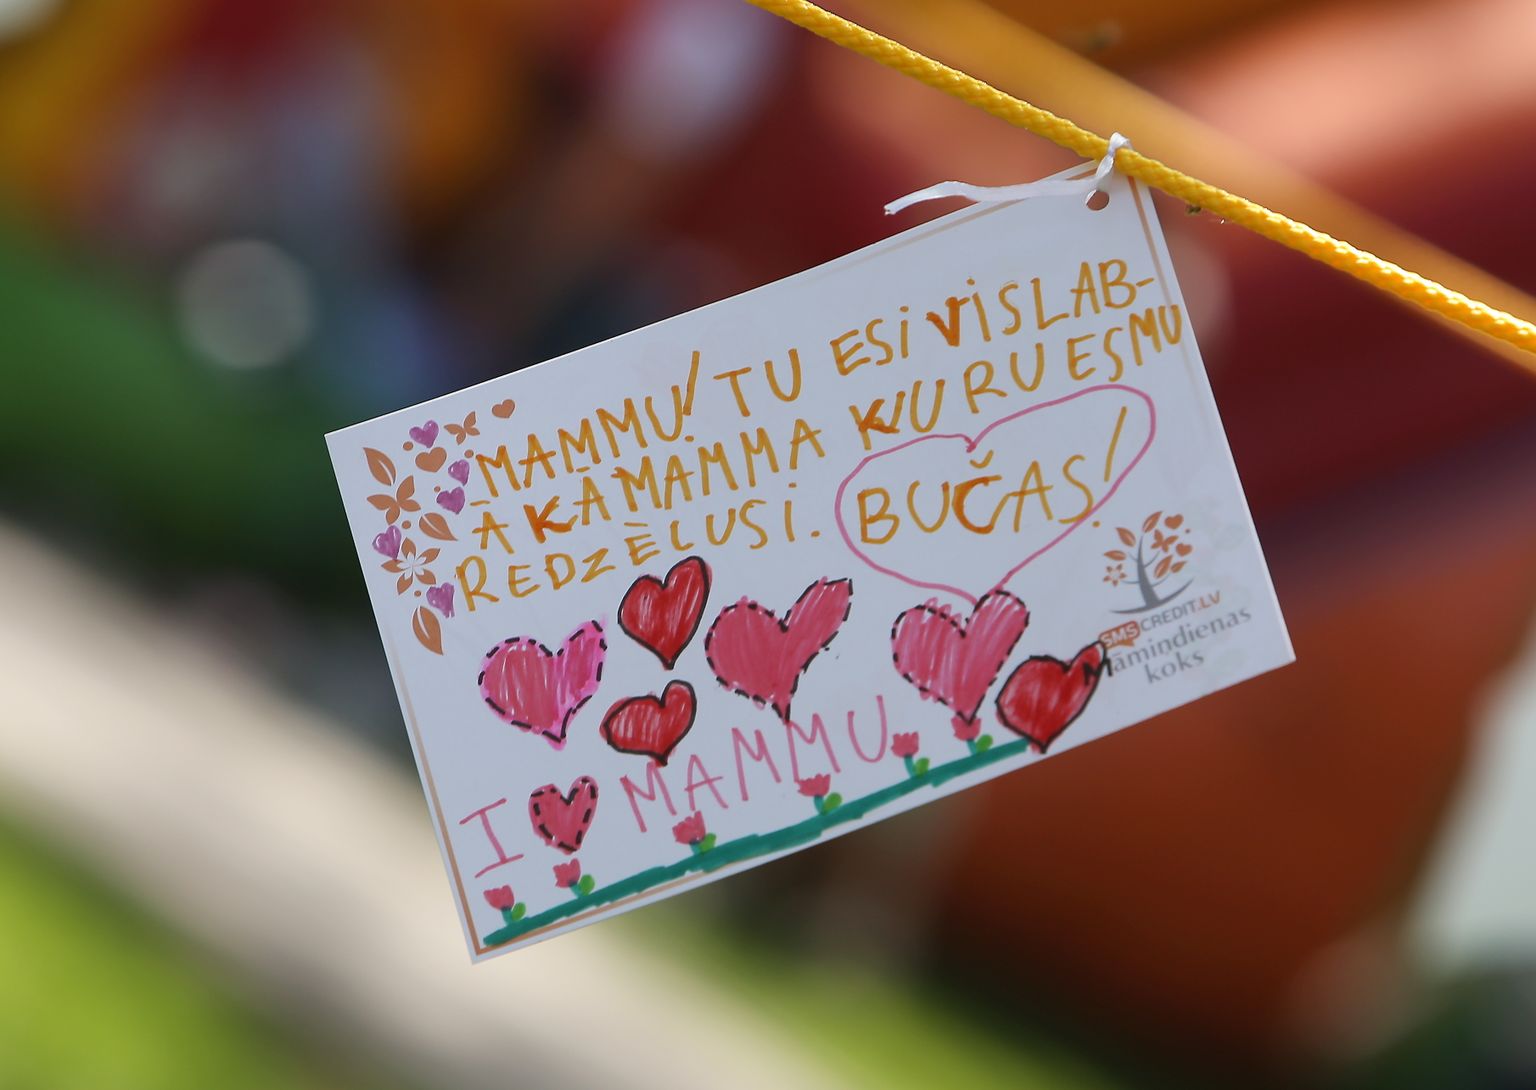 MAMMU! TU ESi VİSLAB-
ĀKĀ MAMMA KURU ESMU
REDZĒLUSi. BUČAS!
I MAMMU
SMSCREDIT.LV
Māmiņdienas
koks